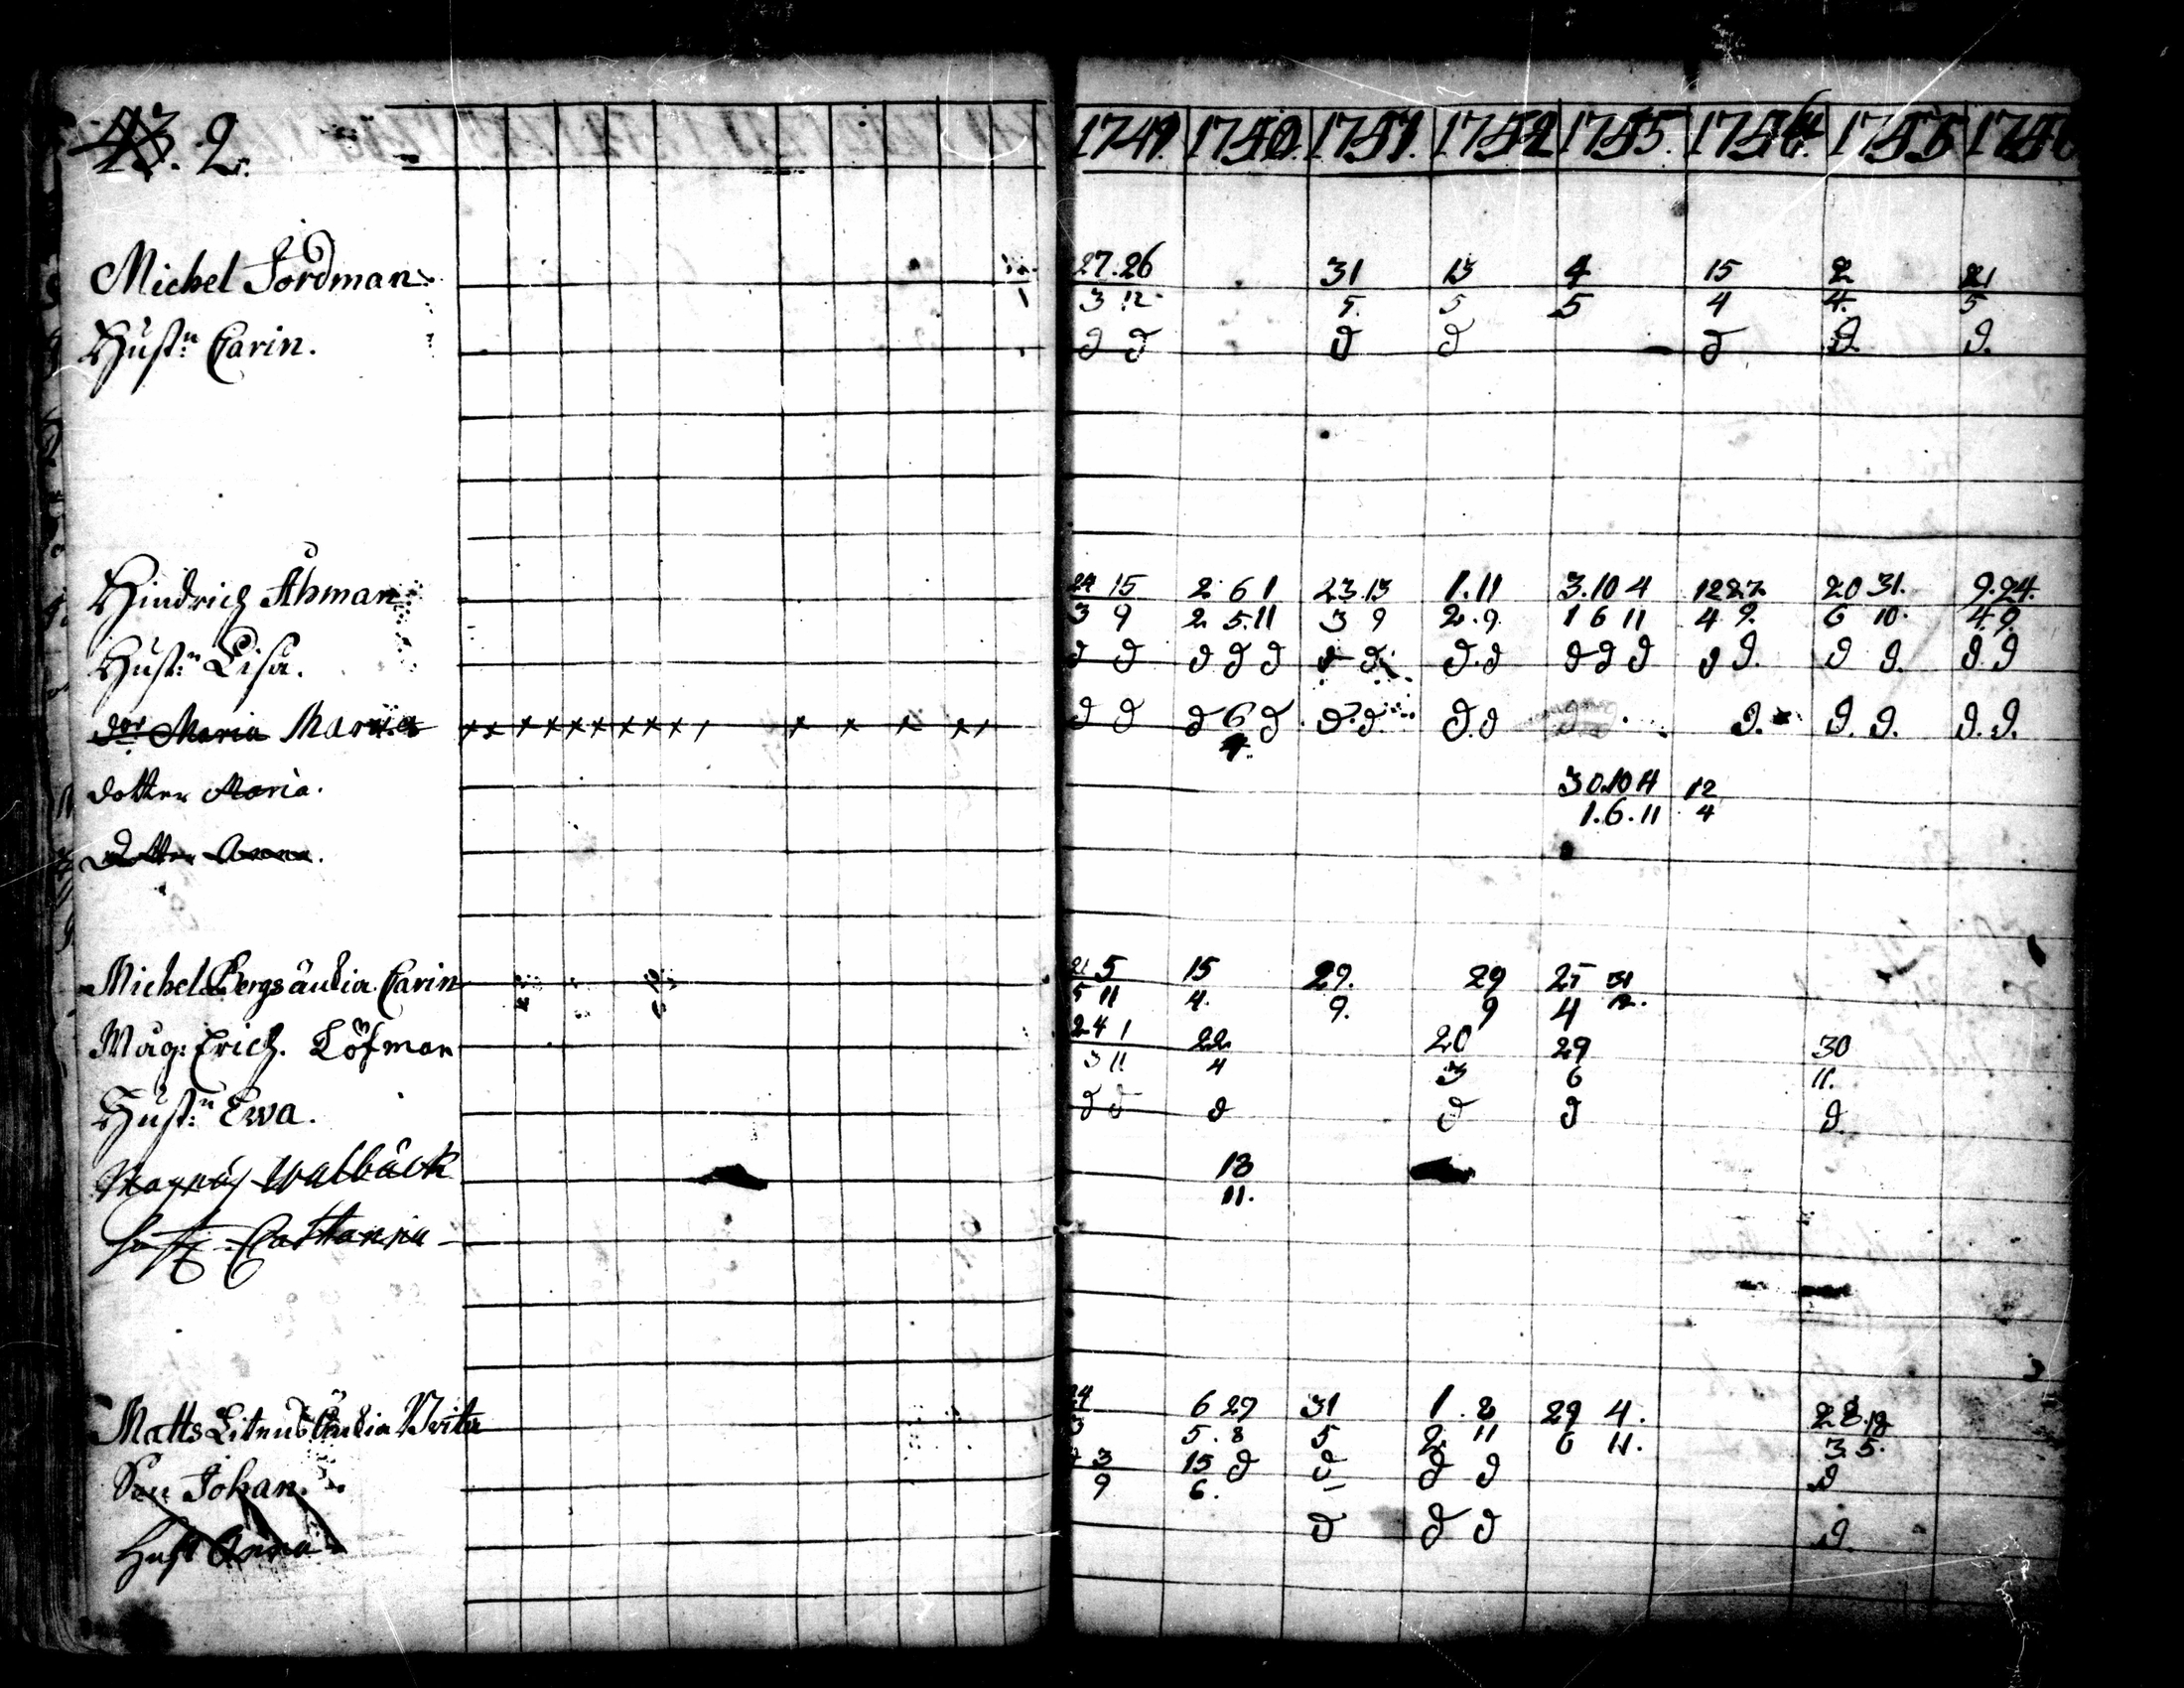 43. 2. 1749. 1750. 1751. 1752 1755. 1756. 1755 175
Michel Jordman. 27.26 31 13 4 15 2 21
3 12. 5. 5 5 4 4. 5
Hust:n Carin. d d d d d d. d.
Hindrich Åhman 24 15 2 6 1 23.13 1.11 3.10 4 12 27. 20 31. 9.24.
3 9 2 5.11 3 9 2.9. 1 6 11 4 9. 6 10. 4 9.
Hust:n Lisa. d d d d d d d d.d d d d d d. d d. d d
dotr Maria Maria x x x x x x x x x x x x x d d d 6 d d. d. d.d d. d. d. d. d.
dotter Maria. 30.10 4 12
1.6.11 4
Dotter
Michel Bergsäulia Carin 21 5 15 29. 29 25 31
5 11 4. 9. 9 4 12.
Måg: Erich. Löfman 24 1 22 20 29 30
3 11 4 3 6 11.
Hust:n Ewa. d d d d d d.
Walbäck 18
11.
Matts 24 6 29 31 1. 2 29 4. 28.18
3 5. 8 5 2. 11 6 11. 3 5.
Son Johan. 3 15 d d d d d
9 6.
Hust Anna d d d d.